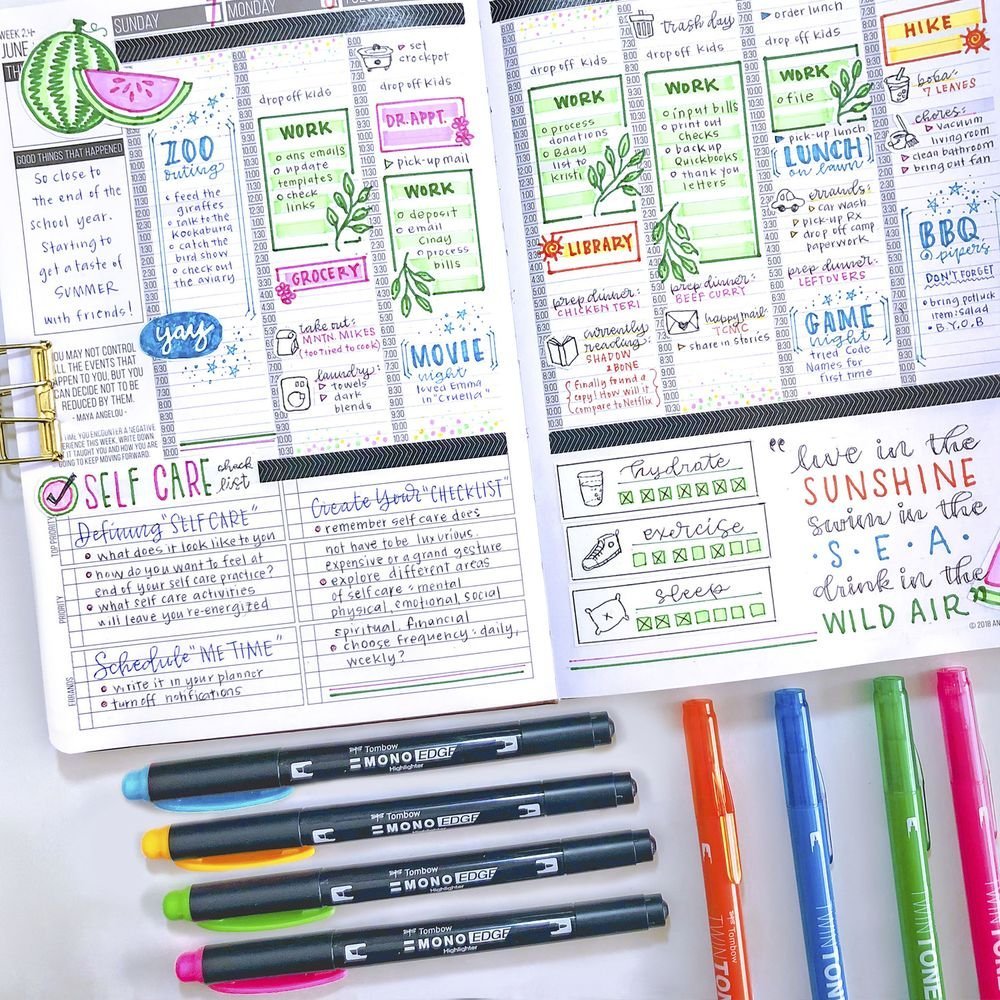 WEEK 24
SUNDAY
MONDAY
JUNE
GOOD THINGS THAT HAPPENED
So close to
the end of the
school year.
Starting to
get a taste of
SUMMER
with friends!
YOU MAY NOT CONTROL
ALL THE EVENTS THAT
HAPPEN TO YOU, BUT YOU
CAN DECIDE NOT TO BE
REDUCED BY THEM.
- MAYA ANGELOU -
TIME YOU ENCOUNTER A NEGATIVE
EXPERIENCE THIS WEEK, WRITE DOWN
IT TAUGHT YOU AND HOW YOU ARE
GOING TO KEEP MOVING FORWARD.
ZOO
outing
feed the
giraffes
talk to the
Kookaburra
catch the
bird show
check out
the aviary
yay
drop off kids
WORK
ans emails
update
templates
check
links
GROCERY
take out:
MNTN. MIKES
(too tired to cook)
laundry:
towels
dark
blends
set
crockpot
drop off kids
DR. APPT.
pick-up mail
WORK
deposit
email
Cindy
process
bills
MOVIE
night
loved Emma
in "Cruella"
drop off kids
WORK
process
donations
Bday
list to
Kristi
LIBRARY
prep dinner:
CHICKEN TERI
currently
reading:
SHADOW
& BONE
finally found a
copy! How will it
compare to Netflix
trash day
drop off kids
WORK
input bills
print out
checks
backup
Quickbooks
thank you
letters
prep dinner:
BEEF CURRY
happy mail:
TCMC
share in stories
order lunch
drop off kids
WORK
file
pick-up lunch
LUNCH
on lawn
errands:
car wash
pick-up Rx
drop off camp
paperwork
prep dinner:
LEFTOVERS
GAME
night
tried Code
Names for
first time
HIKE
boba:
7 LEAVES
chores:
vacuum
living room
clean bathroom
bring out fan
BBQ
pipers
DON'T FORGET
bring potluck
item: salad
B.Y.O.B
SELF CARE check
list
TOP PRIORITY
PRIORITY
ERRANDS
Defining "SELF CARE"
what does it look like to you
how do you want to feel at
end of your self care practice?
what self care activities
will leave you re-energized
Schedule "ME TIME"
write it in your planner
turn off notifications
Create Your "CHECKLIST"
remember self care does
not have to be luxurious.
expensive or a grand gesture
explore different areas
of self care: mental
physical, emotional, social
spiritual, financial
choose frequency: daily,
weekly?
hydrate
exercise
sleep
"live in the
SUNSHINE
swim in the
·S·E·A·
drink in the
WILD AIR"
© 2018
Tombow
MONO EDGE
Highlighter
Tombow
MONO EDGE
Highlighter
Tombow
MONO EDGE
Highlighter
Tombow
MONO EDGE
Highlighter
Tombow
TWINTONE
TWINTONE
TWINTONE
TWINTONE